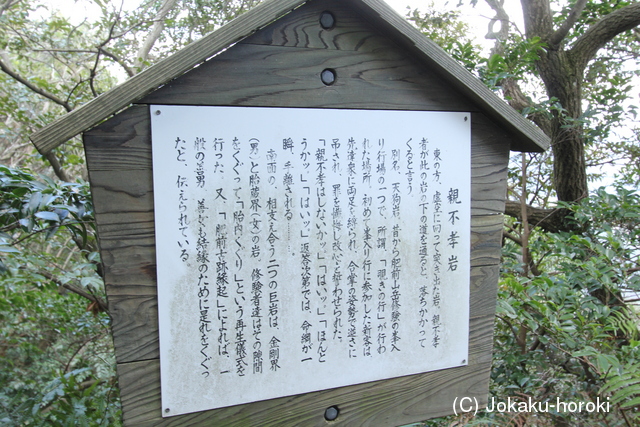 親不孝岩
東の方、虚空に向って突き出た岩。親不孝
者が此の岩の下の道を通ると、落ちかかって
くると言う
別名、天狗岩。昔から肥前山岳修験の峯入
り行場の一つで、所謂、「覗きの行」が行わ
れた場所。初めて峯入り行に参加した新客は
先達衆に両足を縛られ、合掌の姿勢で逆さに
吊され、罪を懺悔し改心を誓わせられた。
「親不孝はしないカッ。」「はいッ。」「ほんと
うかッ。」「はいッ。」返答次第では、命綱が一
瞬、手離される……。
南面の、相支え合う二つの巨岩は、金剛界
(男)と胎蔵界(女)の岩。修験者達はその隙間
をくぐって「胎内くぐり」という再生儀式を
行った。又、「肥前古跡縁起」によれば、一
般の善男、善女も結縁のために是れをくぐっ
たと、伝えられている。
(C) Jokaku-horoki